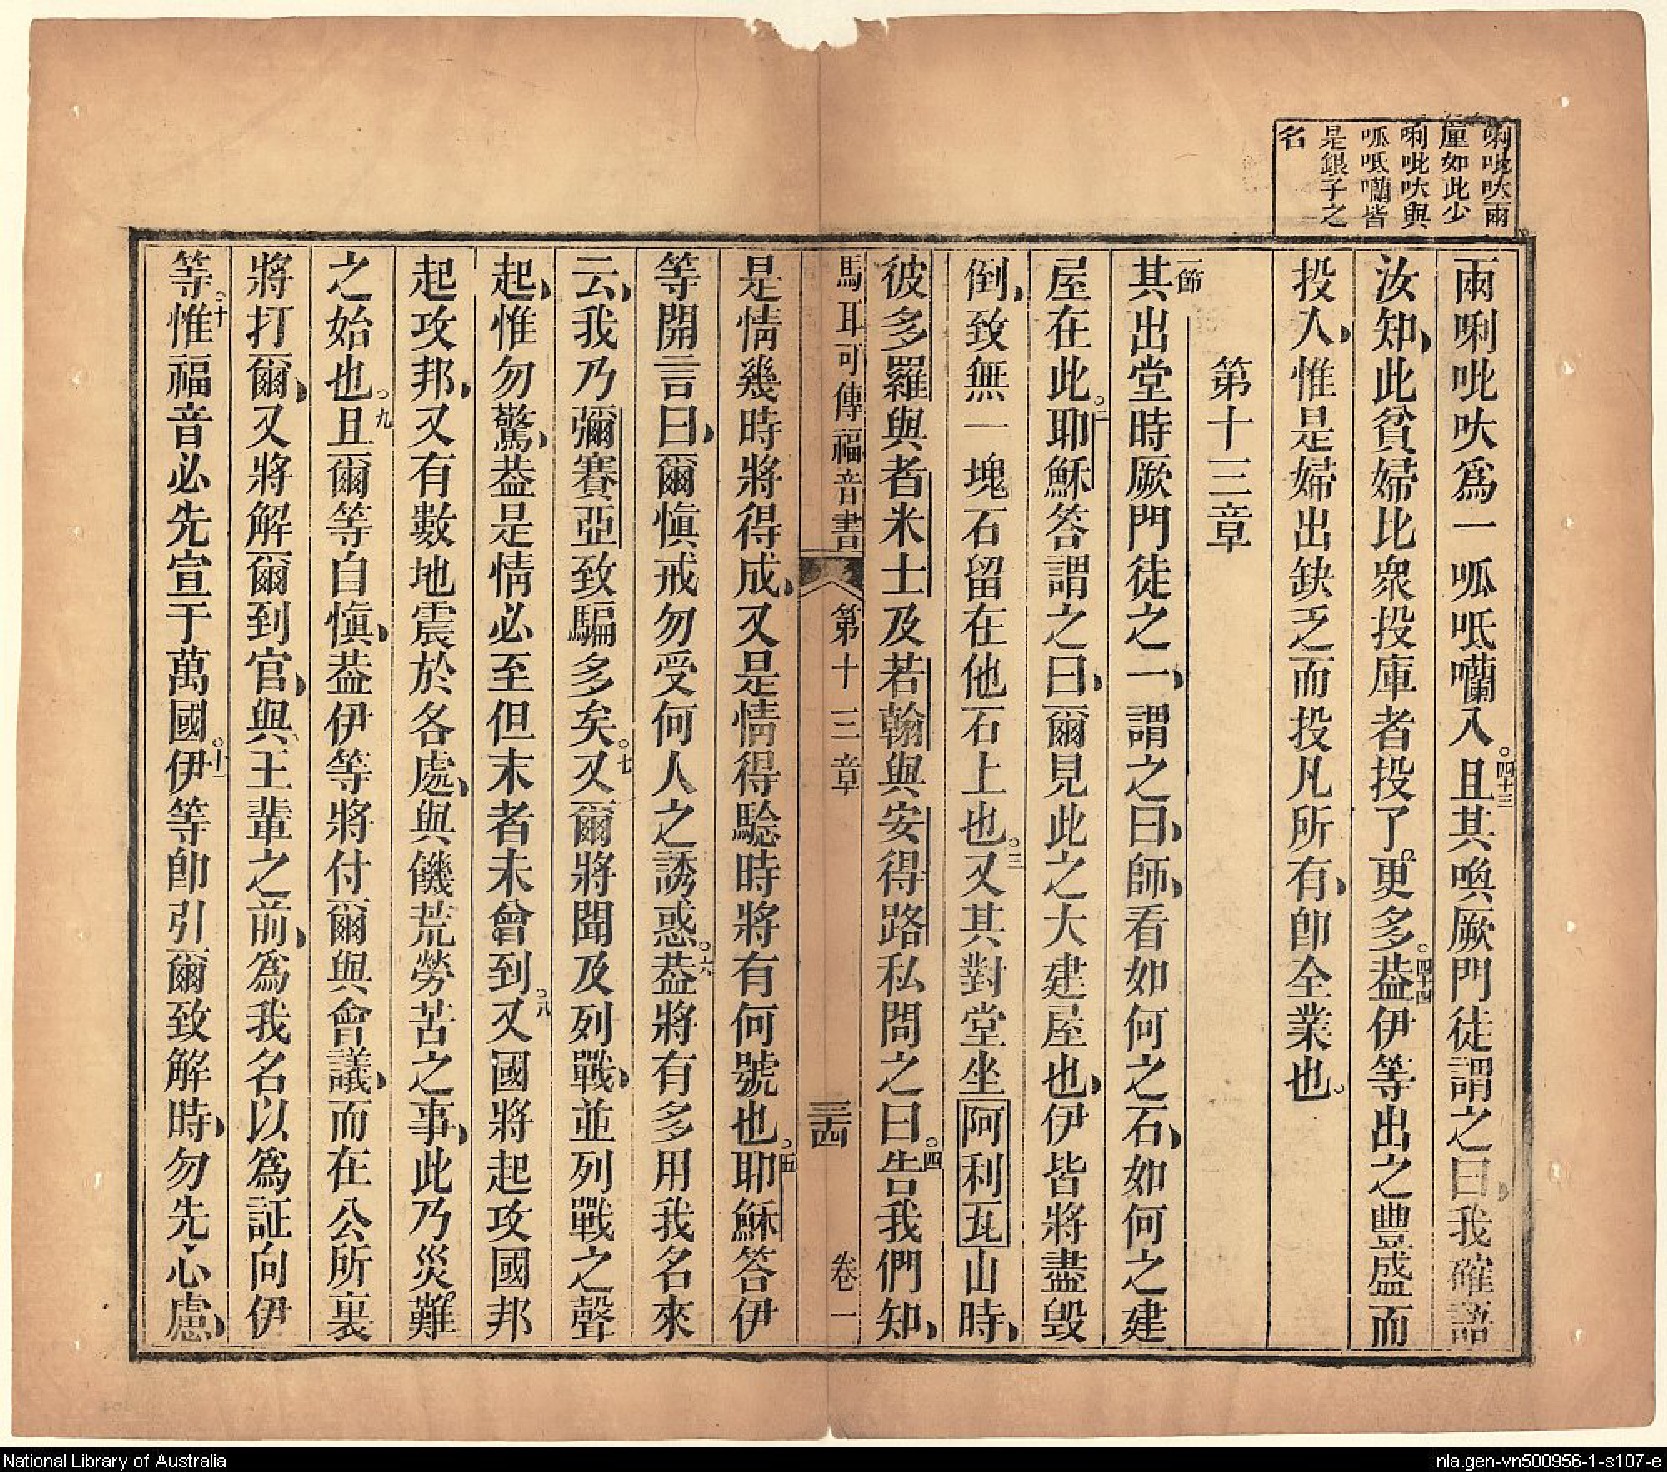 唎吡吠兩
厘如此少
唎吡吠與
呱呧嚪皆
是銀子之
名
兩唎吡吠爲一呱呧囒入。四十三且其喚厥門徒謂之曰我確語
汝知此貧婦比衆投庫者投了更多。四十四葢伊等出之豐盛而
投入惟是婦出缺乏而投凡所有卽全業也。
第十三章
一節其出堂時厥門徒之一謂之曰師看如何之石如何之建
屋在此。二耶穌答謂之曰爾見此之大建屋也伊皆將盡毁
倒致無一塊石留在他石上也。三又其對堂坐阿利瓦山時
彼多羅與者米士及若翰與安得路私問之曰。四告我們知
馬耳可傳福音書 第十三章 三十四 卷一
是情幾時將得成又是情得騐時將有何號也。五耶穌答伊
等開言曰爾愼戒勿受何人之誘惑。六葢將有多用我名來
云我乃彌賽亞致騙多矣。七又爾將聞及列戰並列戰之聲
起惟勿驚葢是情必至但末者未曾到。八又國將起攻國邦
起攻邦又有數地震於各處與饑荒勞苦之事此乃災難
之始也。九且爾等自愼葢伊等將付爾與會議而在公所裏
將打爾又將解爾到官與王輩之前爲我名以爲証向伊
等。十惟福音必先宣于萬國。十一伊等卽引爾致解時勿先心慮
National Library of Australia
nla.gen-vn500956-1-s107-e